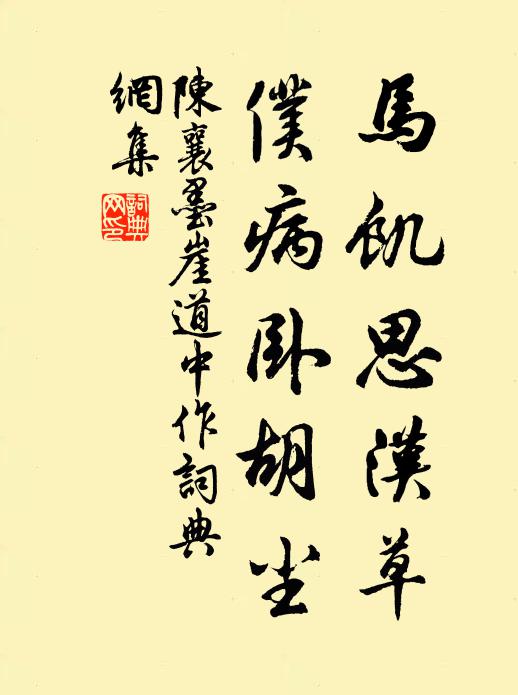 馬飢思漢草
僕病臥胡尘
陳襄墨崖道中作詞典
網集
詞典網印